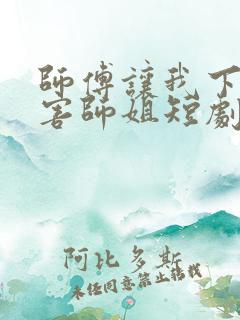 師傅讓我下
害師姐短劇
阿比多斯
未經同意禁止轉載